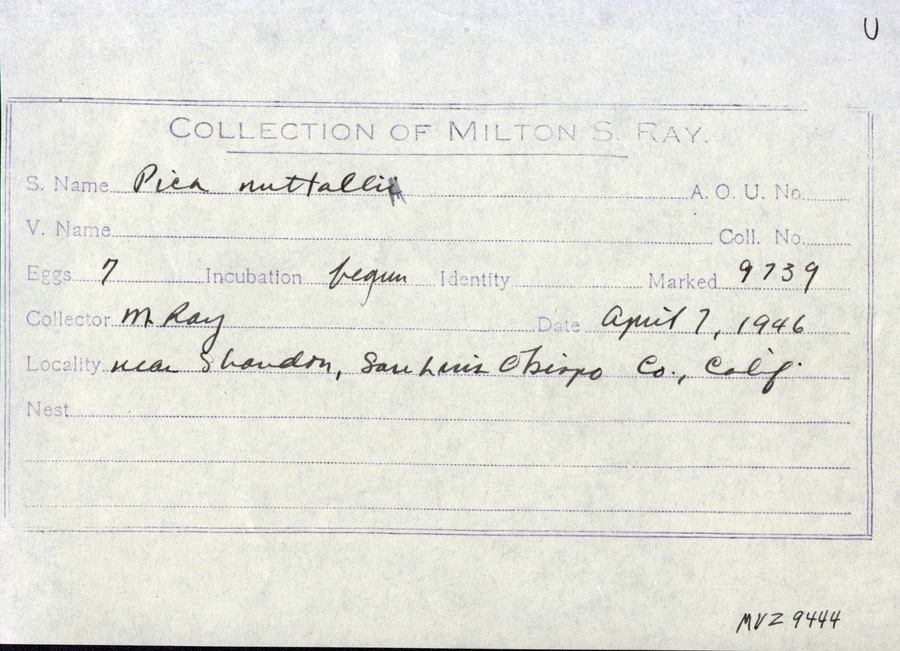 U
COLLECTION OF MILTON S. RAY.
S. Name Pica nuttallii A. O. U. No.
V. Name Coll. No.
Eggs 7 Incubation begun Identity Marked 9739
Collector M. Ray Date April 7, 1946
Locality near Shandon, San Luis Obispo Co., Calif.
Nest
MVZ 9444